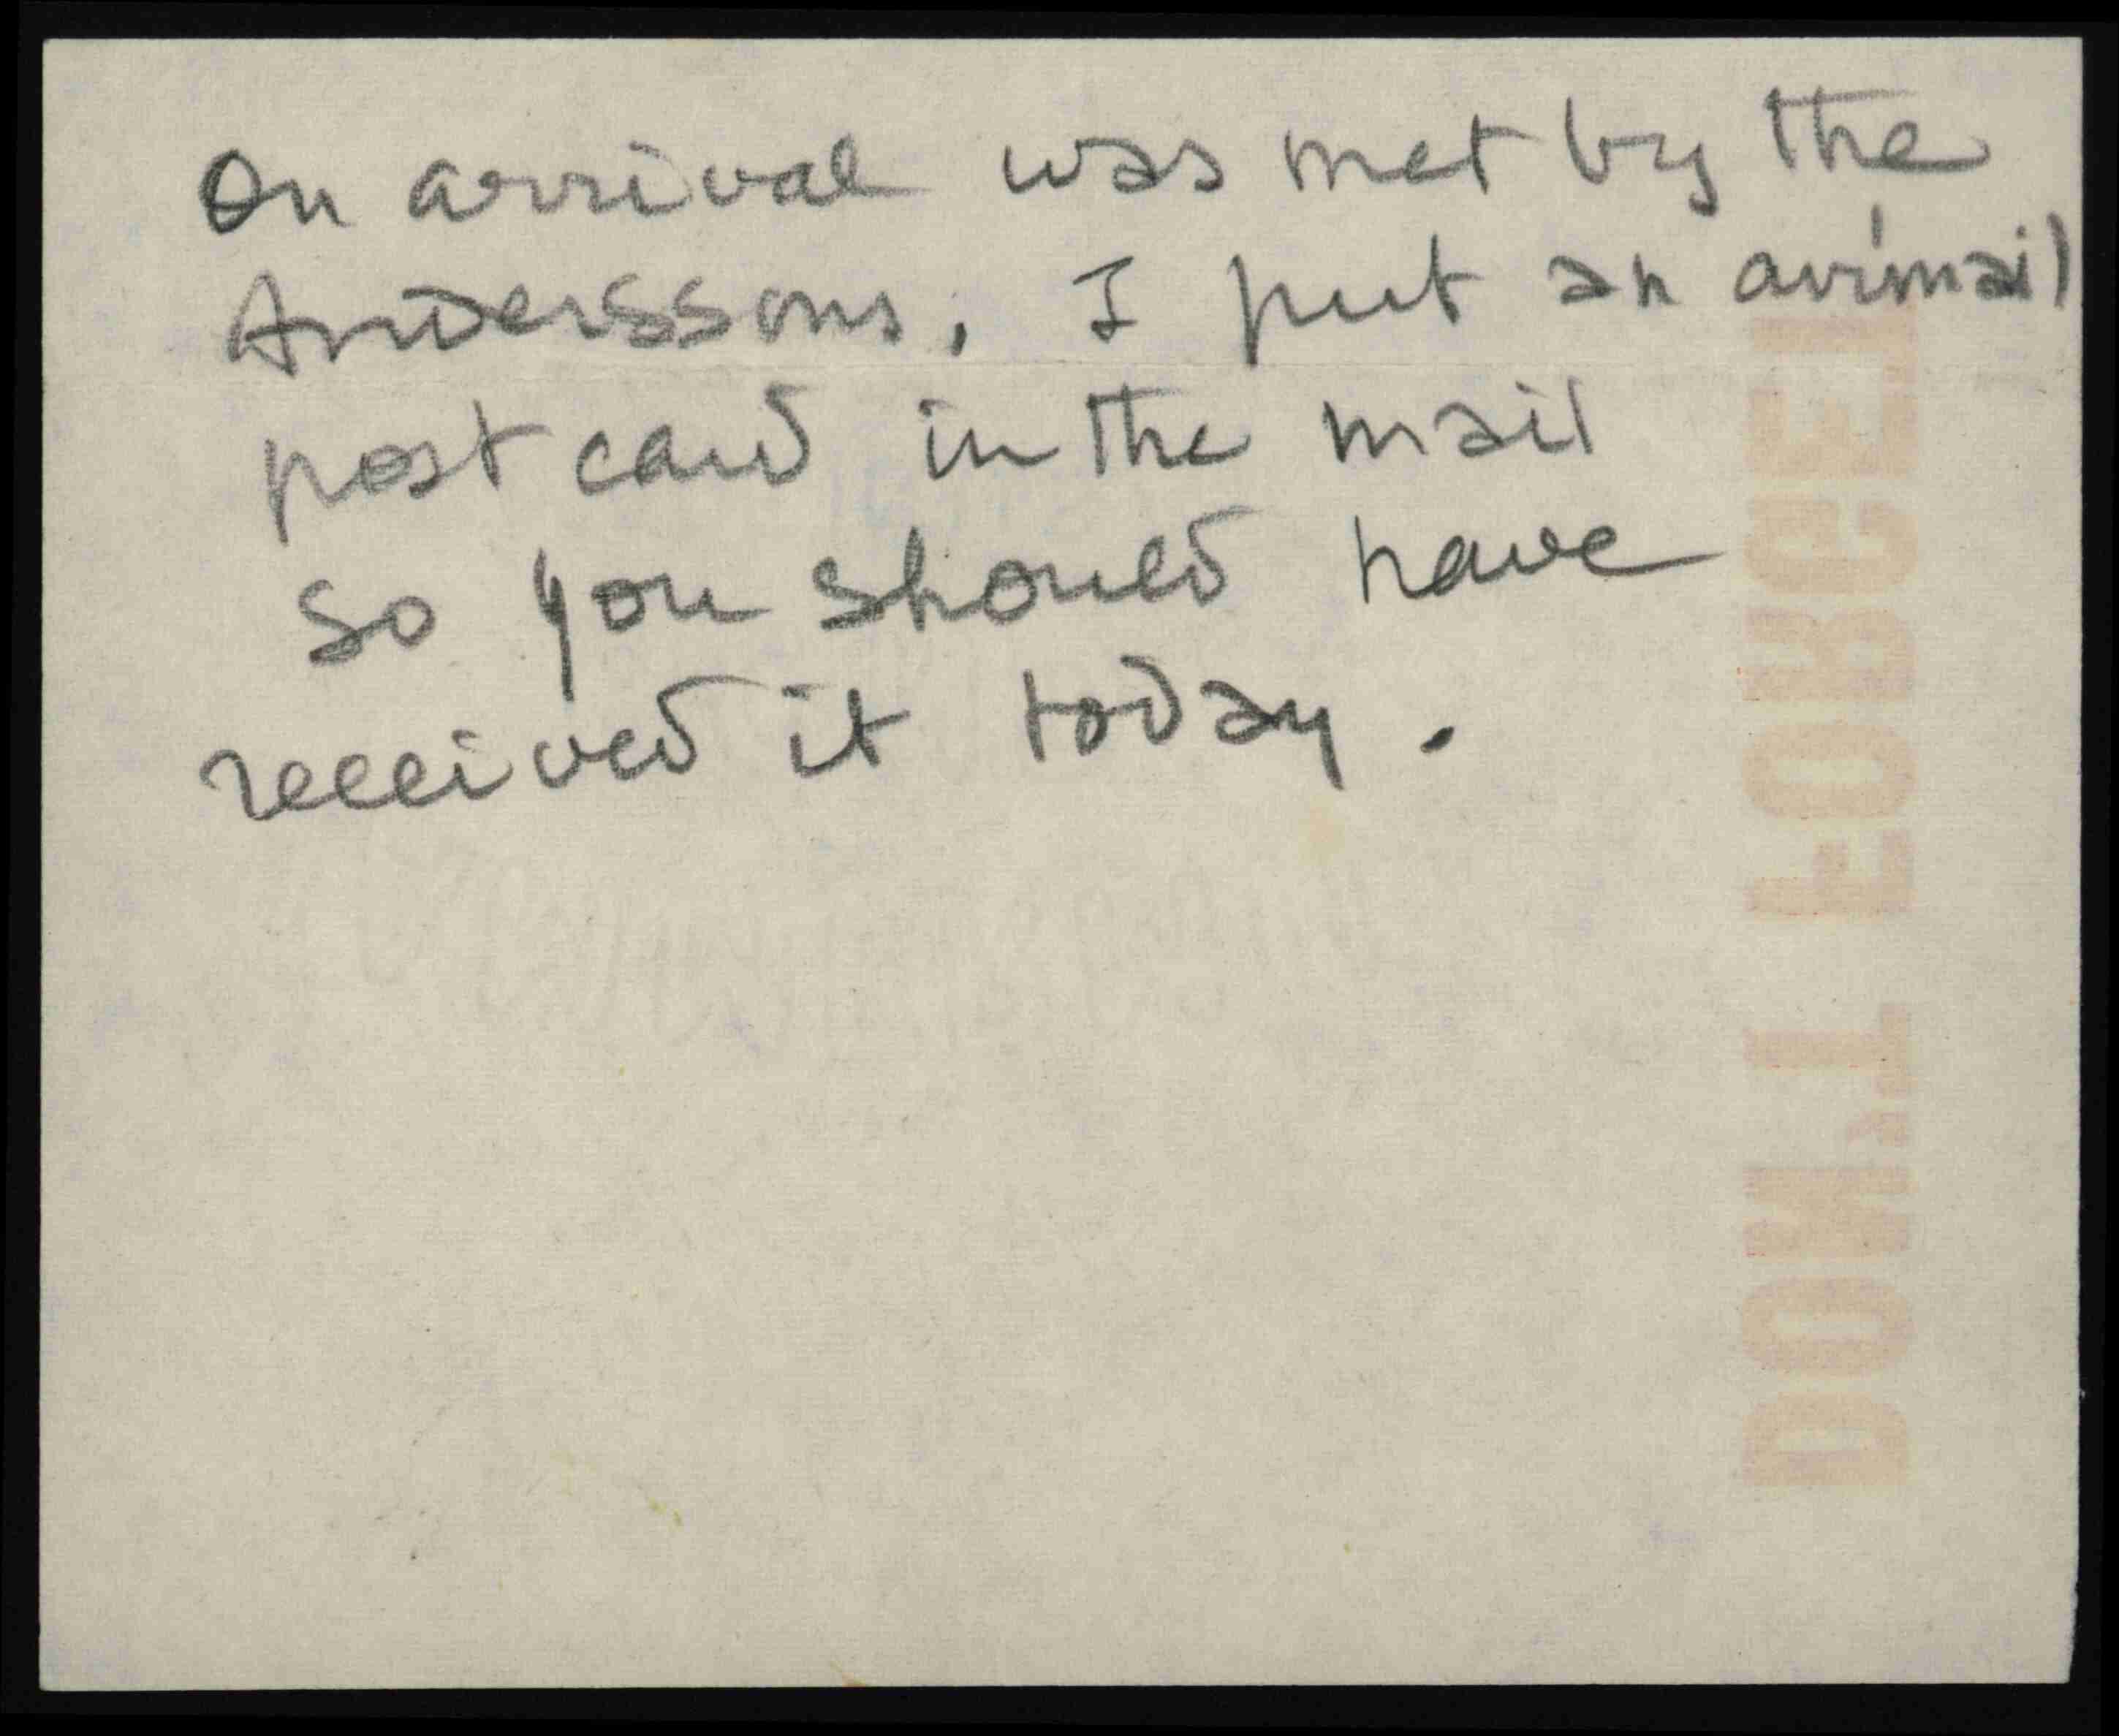 On arrival was met by the
Anderssons. I put an airmail
post card in the mail
so you should have
received it today.
DON'T FORGET